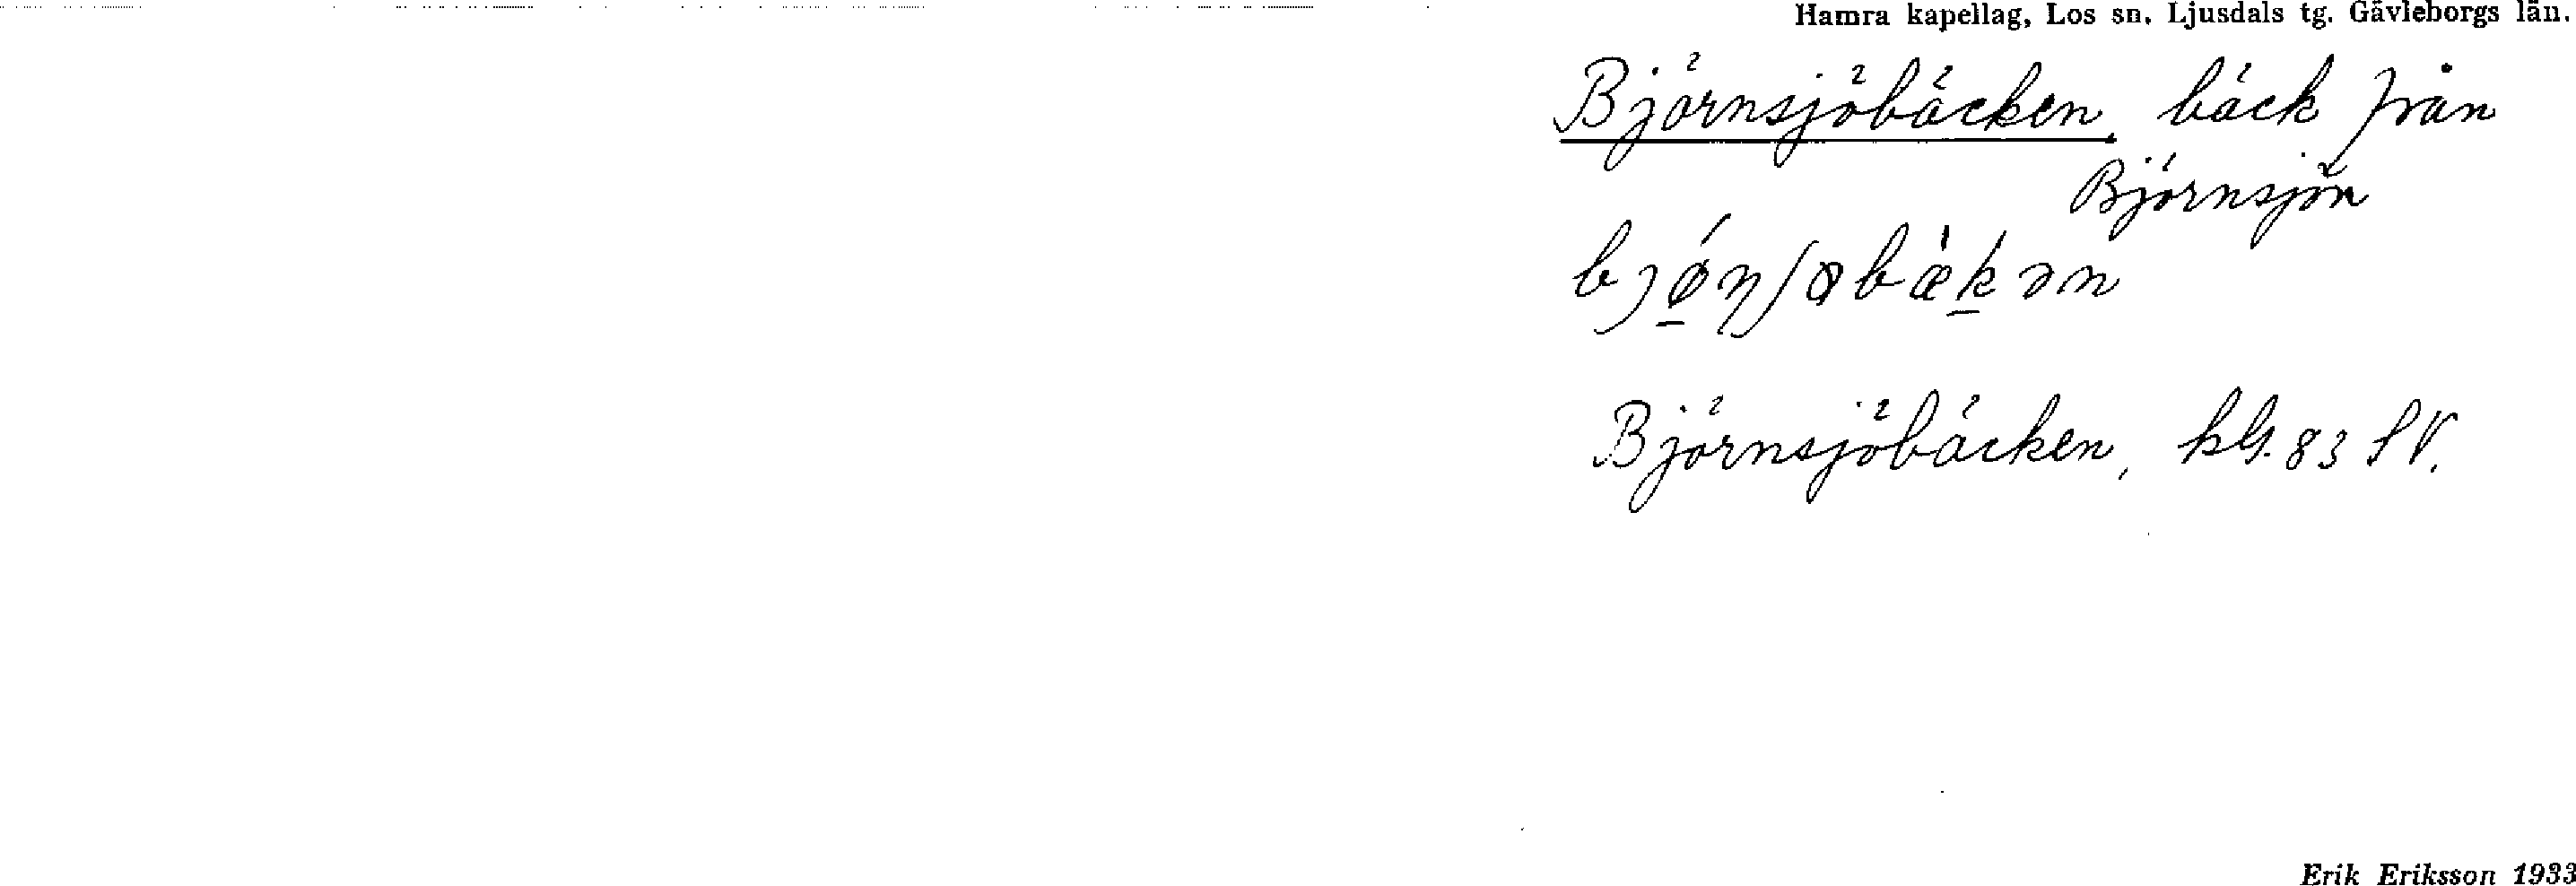 Hamra kapellag, Los sn. Ljusdals tg. Gävleborgs län.
Björnsjöbäcken, bäck från
Björnsjön
Björnsjöbäcken, kbl. 83 SV.
Erik Eriksson 1933